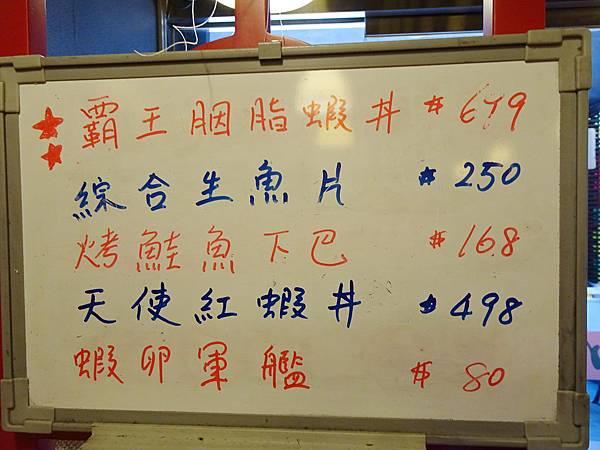 ★★霸王胭脂蝦丼 #679
綜合生魚片 #250
烤鮭魚下巴 #168
天使紅蝦丼 #498
蝦卵軍艦 #80